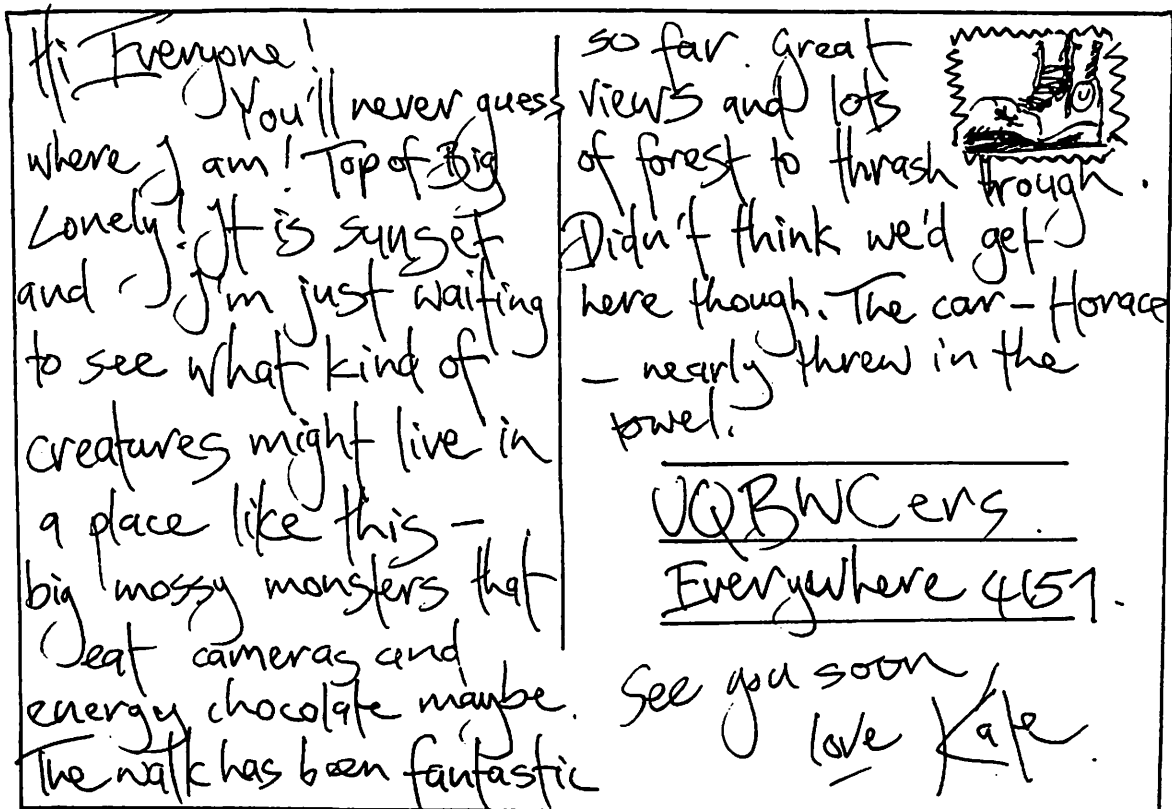 Hi Everyone!
You'll never guess
where I am! Top of Big
Lonely! It is sunset
and I'm just waiting
to see what kind of
creatures might live in
a place like this –
big mossy monsters that
eat cameras and
energy chocolate maybe.
The walk has been fantastic
so far. Great
views and lots
of forest to thrash trough.
Didn't think we'd get
here though. The car – Horace
– nearly threw in the
towel.
UQBWCers.
Everywhere 4151.
See you soon
love Kate.